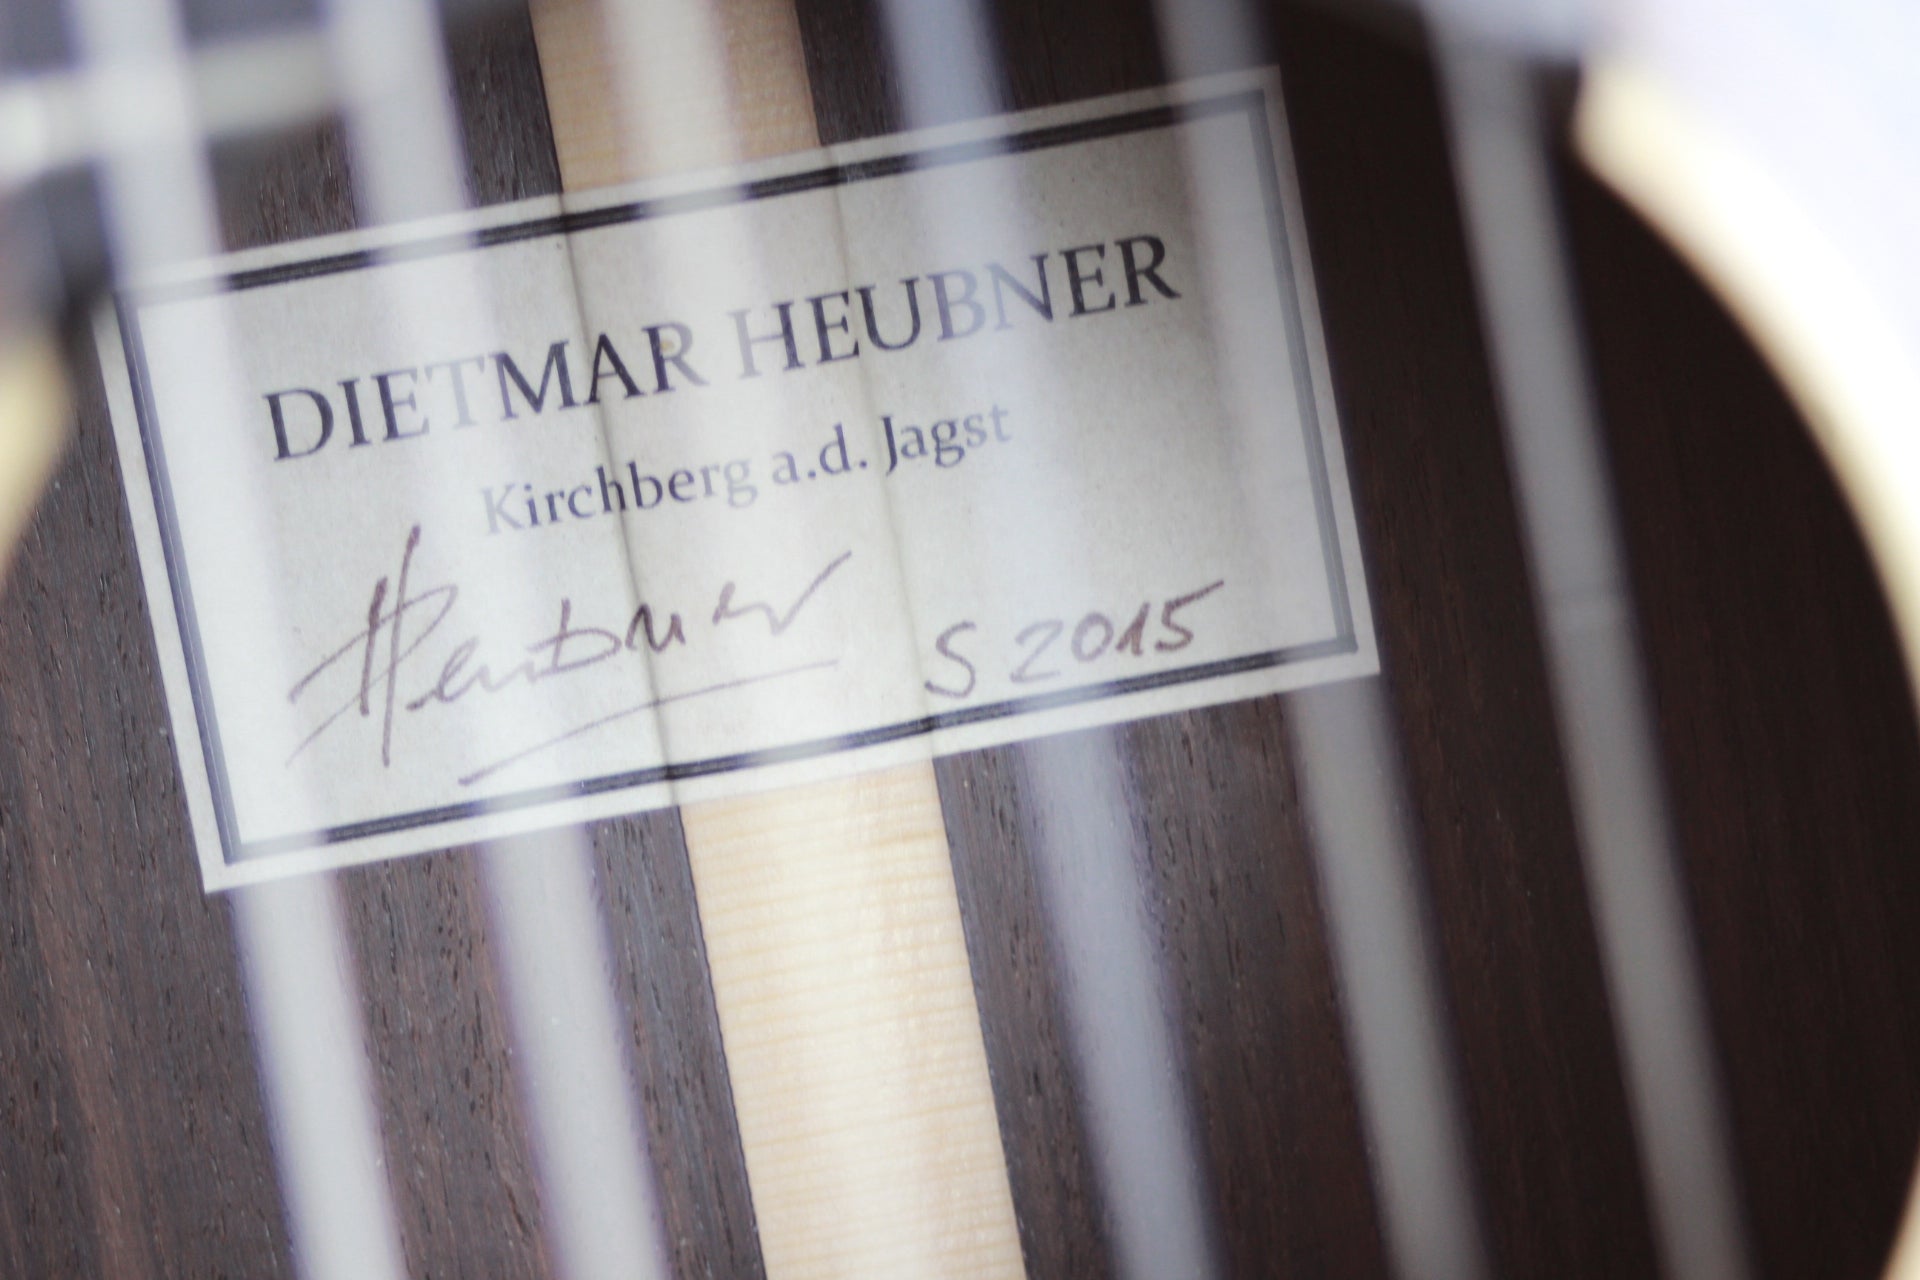 DIETMAR HEUBNER
Kirchberg a.d. Jagst
Heubner S 2015